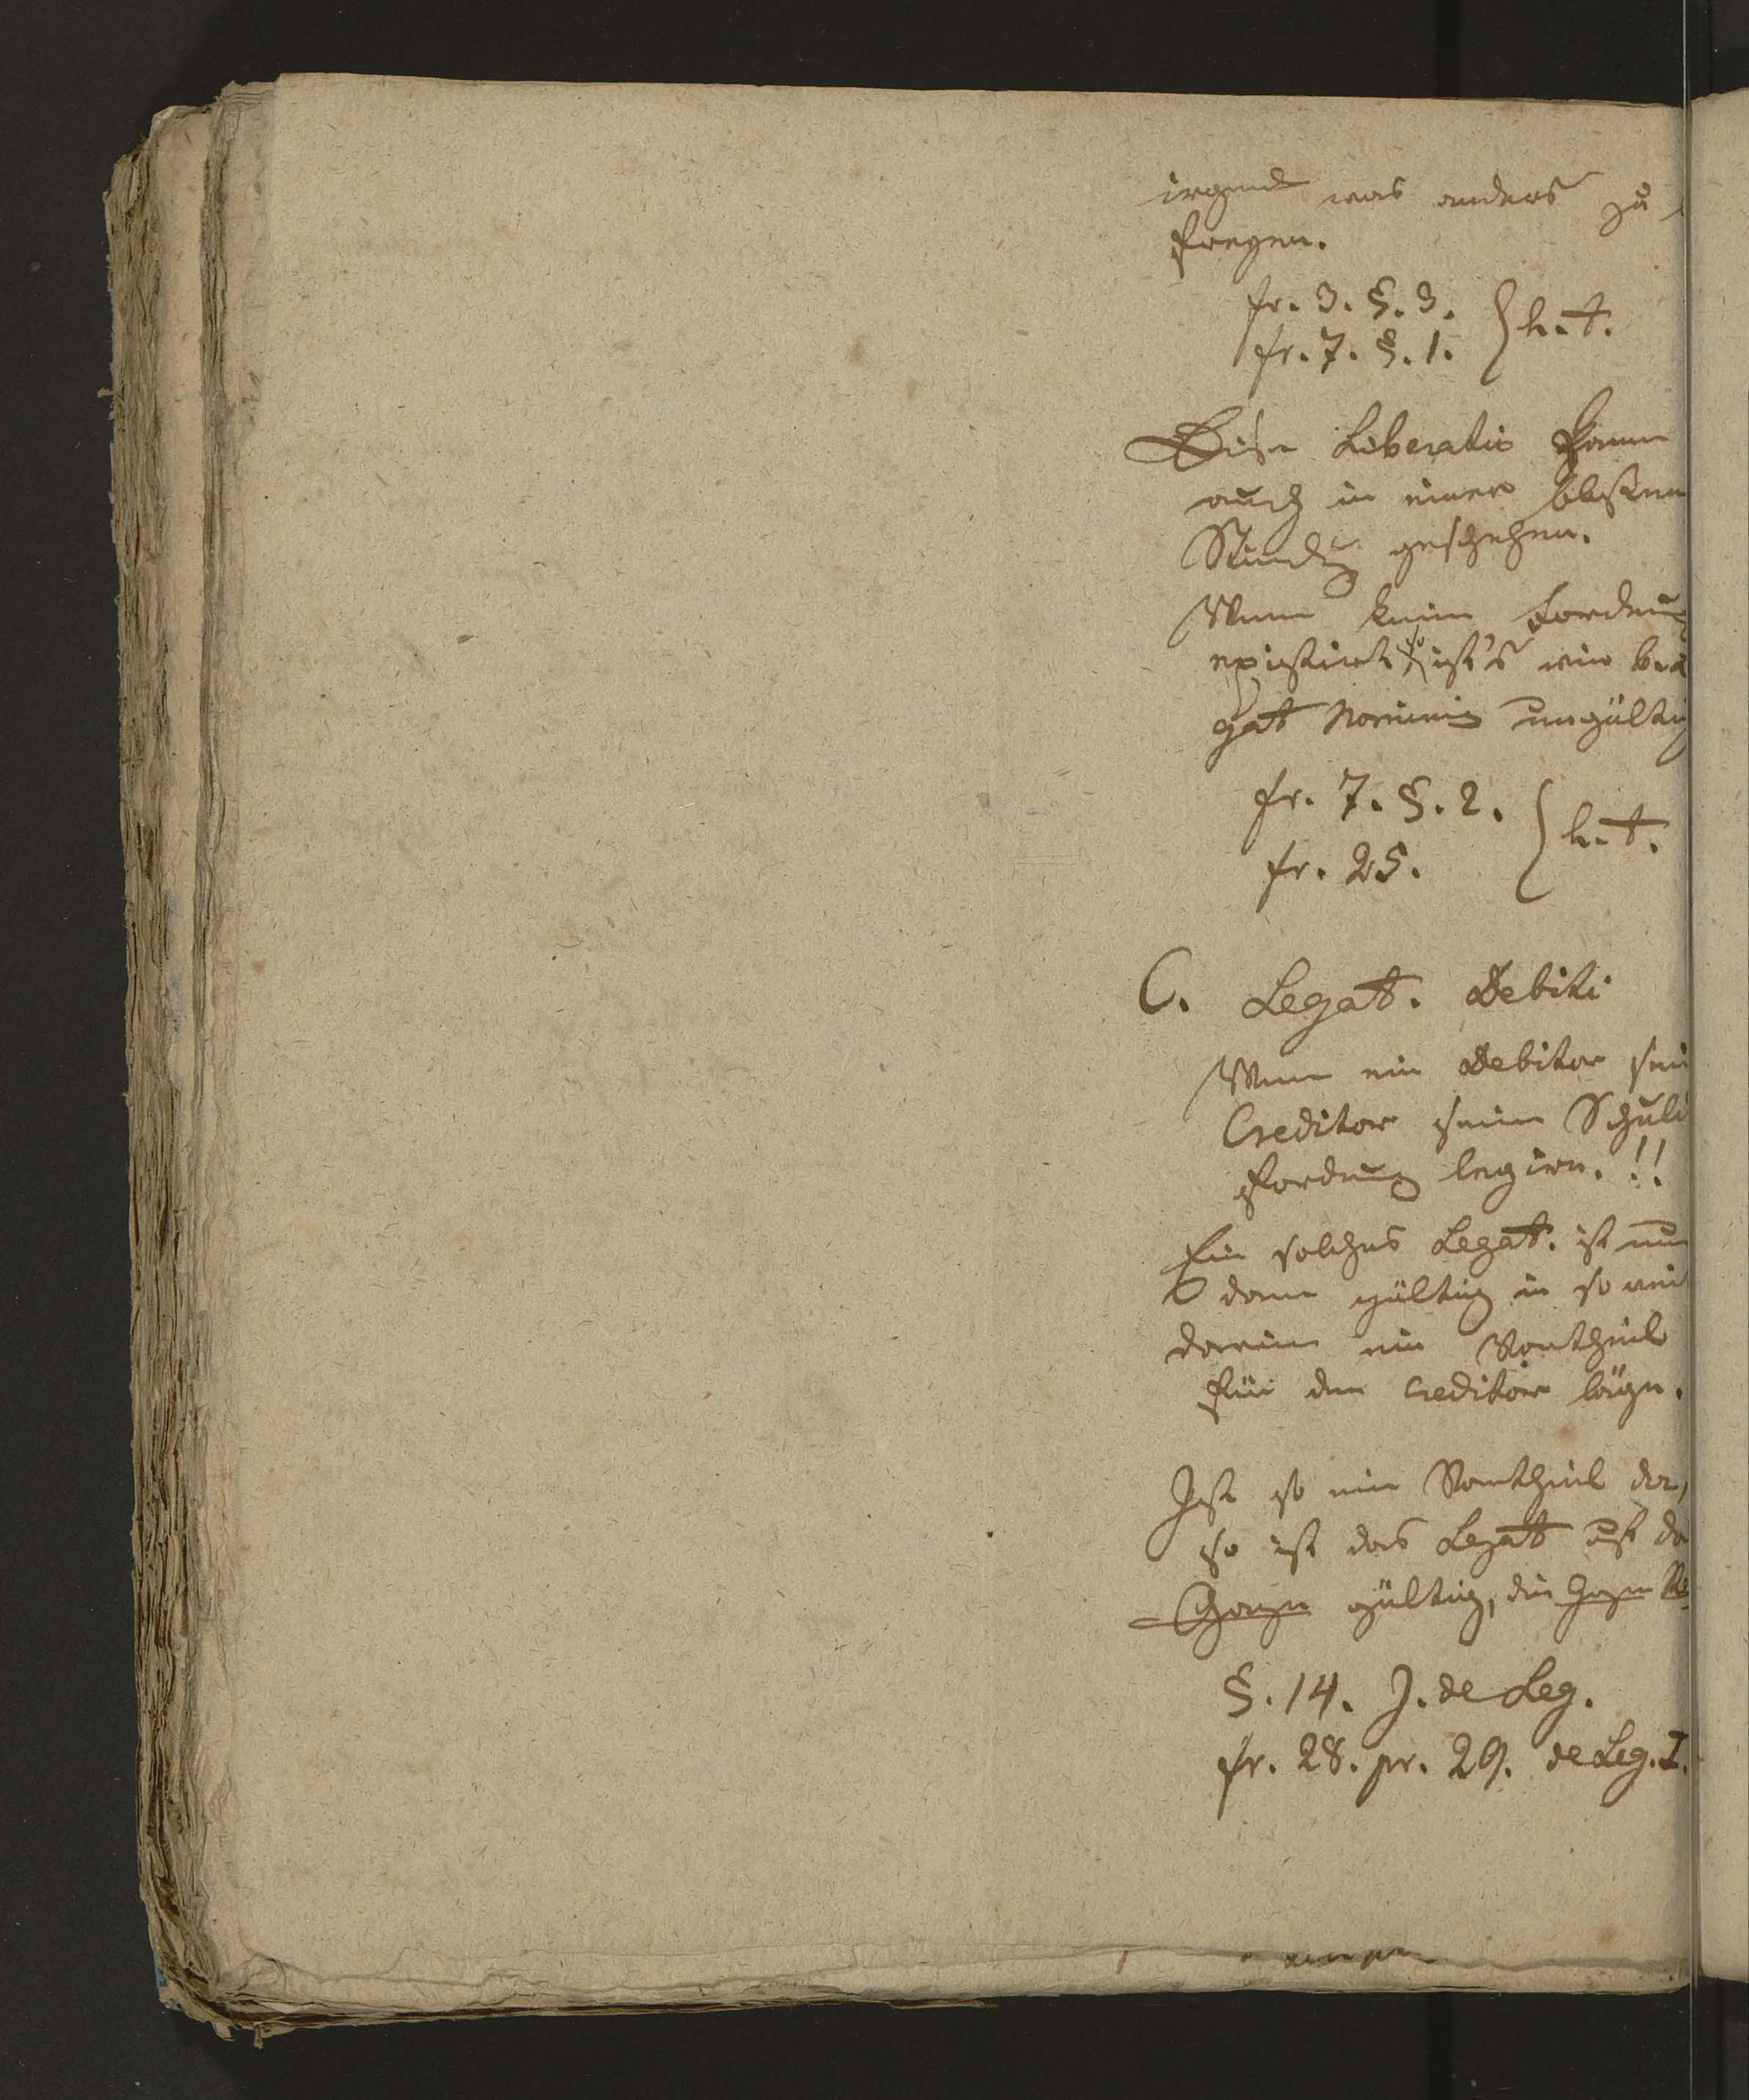 irgend was anders zu
fregen.
fr. 3. §. 3.
fr. 7. §. 1. } h. t.
Diese Liberatio kann
auch in einer blossen
Stundg geschehen.
Wenn keine Fordrung
existirt, so ist's wie b. Le
gat Nominis ungültig
fr. 7. §. 2.
fr. 25. } h. t.
C. Legat. Debiti
Wenn ein Debitor sei
Creditor seine Schuld
fordrung legire. !!
Ein solches Legat. ist nur
dann gültig in so weit
darinn ein Vortheil
für den Creditor läge.
Ist so ein Vortheil da,
so ist das Legat auf das
Ganze gültig, die ganze
§. 14. J. de Leg.
fr. 28. pr. 29. de Leg. I.